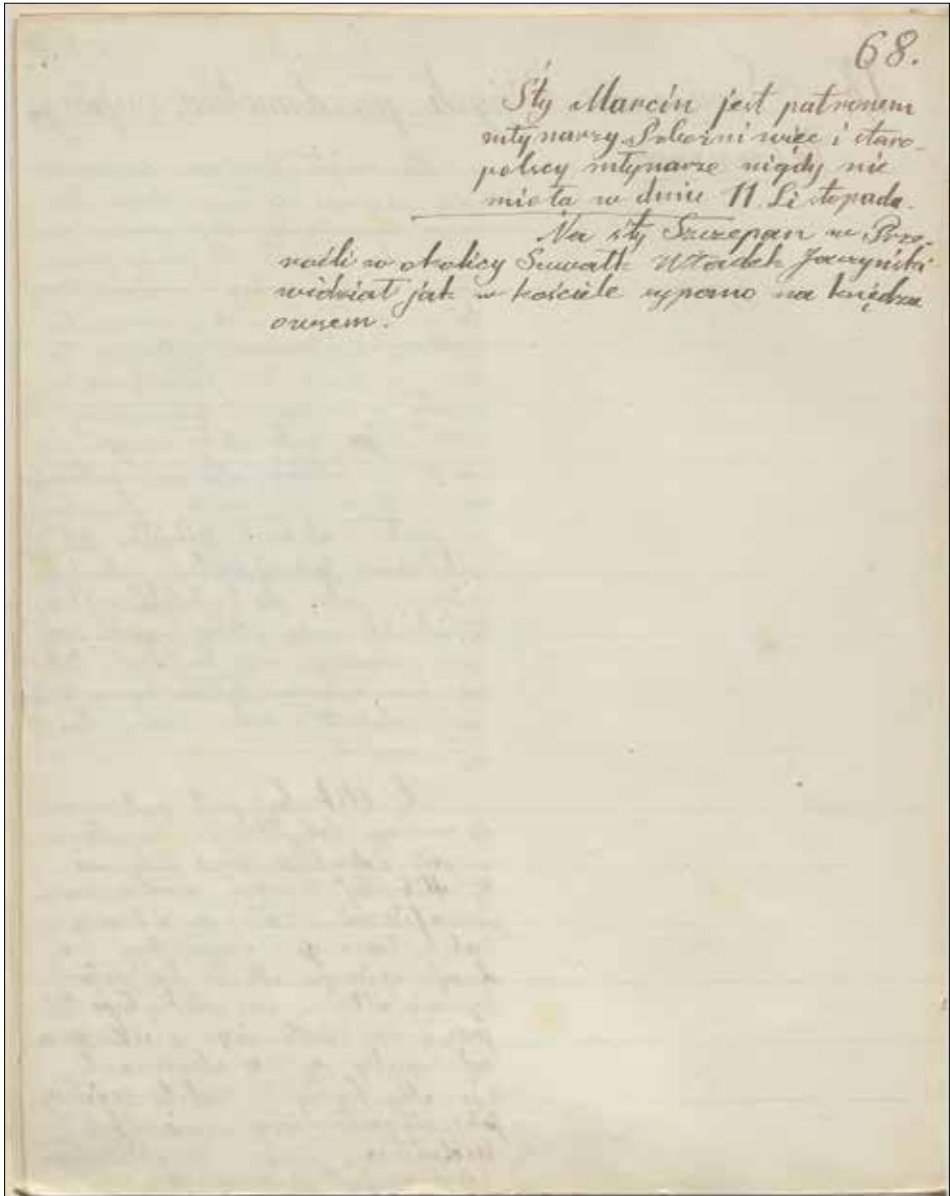 68.
Sty Marcin jest patronem
młynarzy. Pobożni więc i staro-
polscy młynarze nigdy nie
mielą w dniu 11 Listopada.
Na sty Szczepan w Prze-
rośli w okolicy Suwałk Władek Jaczyński
widział jak w kościele sypano na księdza
owsem.